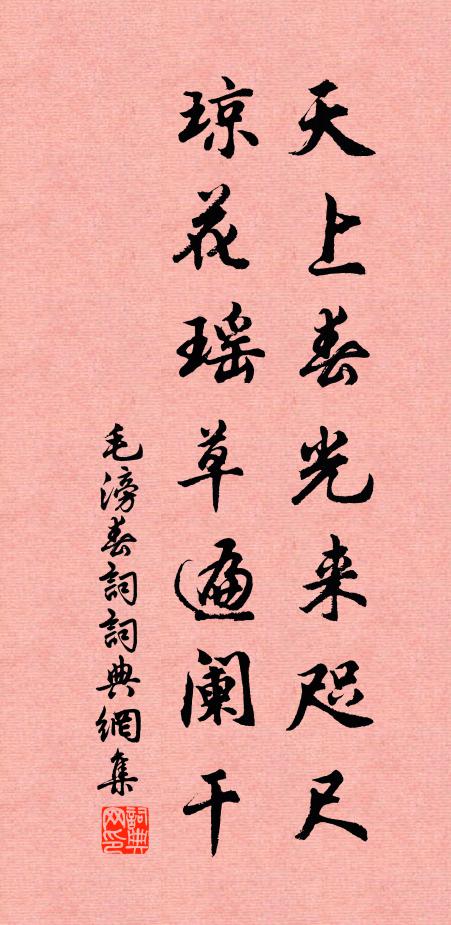 天上春光来咫尺
琼花瑶草遍阑干
毛滂春詞詞典網集
詞典网印